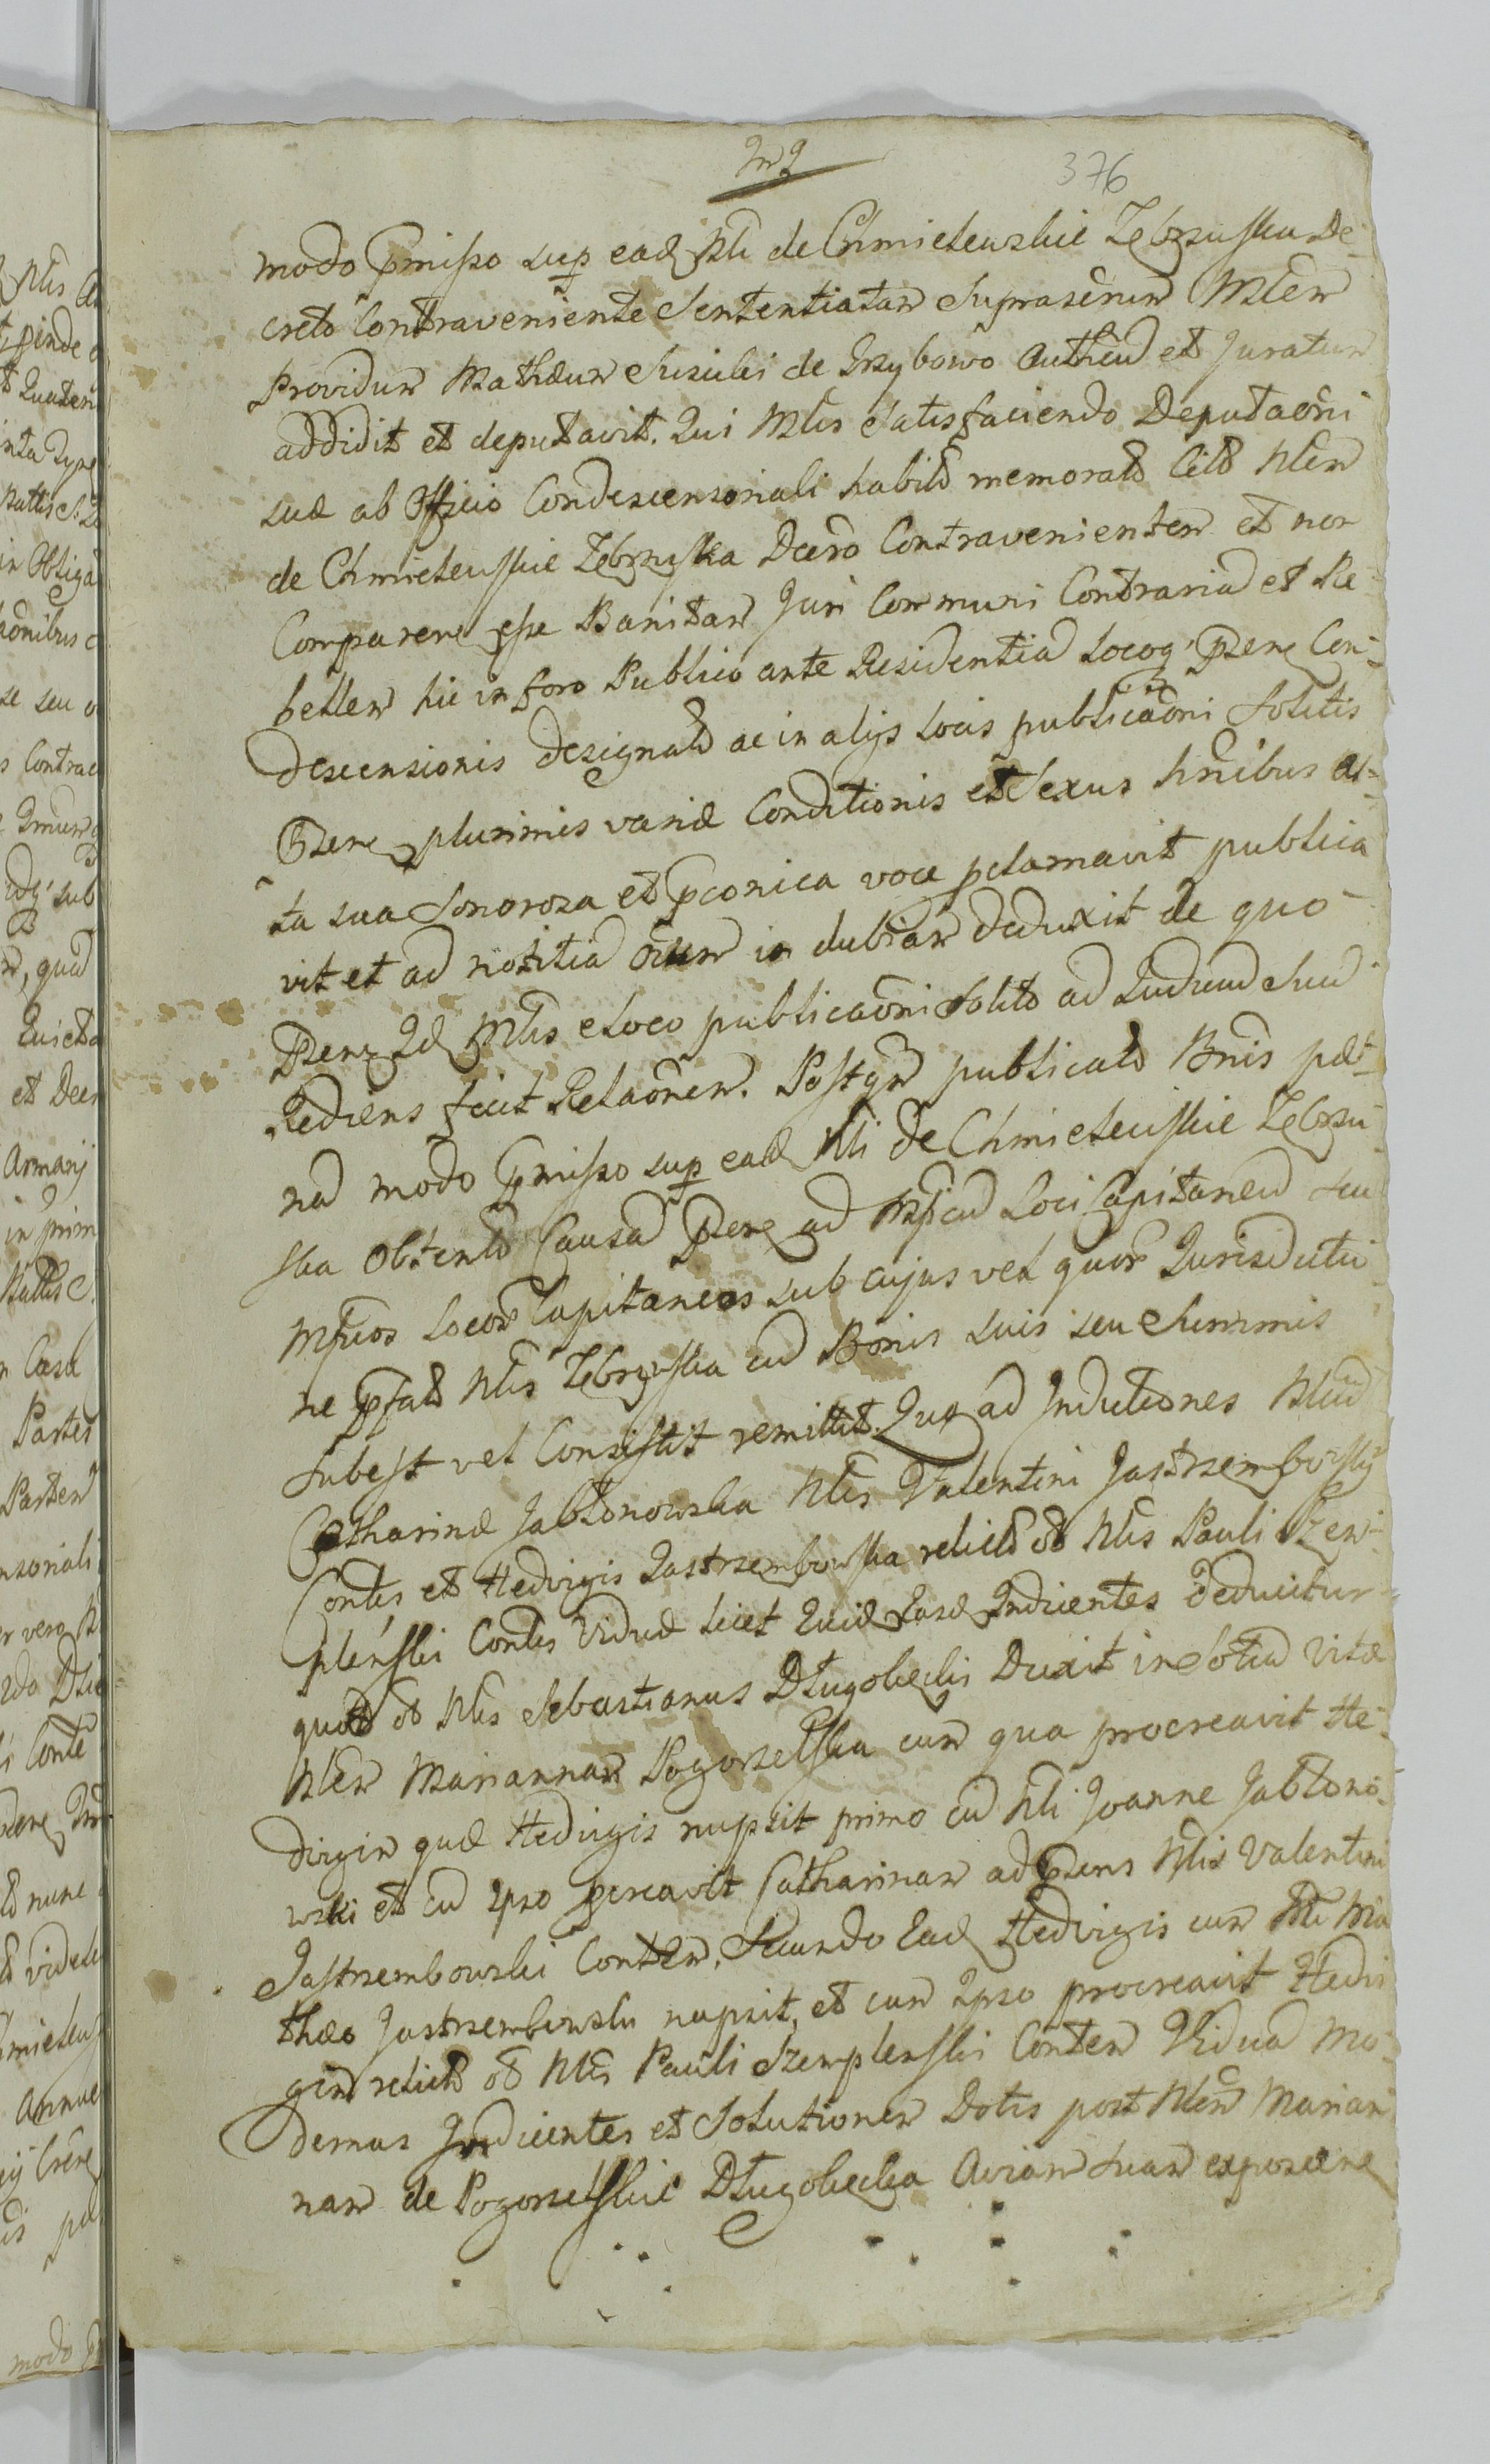 376
modo pmisso sup ead Nli de Chmielewskie Zebrzuska De-
creto Contraveniente Sententiatam Suprascriñ Mlem
Providum Mathæum Susulski de Grzybowo Authen et Juratum
addidit et deputavit. Qui Mlis Satisfaciendo Deputaõni
suæ ab Officio Condescensoriali habita memorata Cita Nlem
de Chmielewskie Zebrzuska Dcero Contravenientem et non
Comparen esse Banitam Juri Communi Contraria et Re-
bellem hic in foro Publico ante Residentia Locoq Psen Con-
descensionis designata ac in alijs Locis publicaõni Solitis
Psen plurimis variæ Conditionis et Sexus hnibus al-
ta sua Sonorosa et pconica voce pclamavit publica
vit et ad notitia oium indubiam deduxit de quo
Psens Id Mlis e Loco publicaõni Solito ad Iudicium Suu
Rediens fecit Relaõnem. Postqm publicata Bnis pæ-
na modo pmisso sup ead Nli de Chmielewskie Zebrzu-
ska Obtenta Causa Psen ad Mficu Loci Capitaneu seu
Mficos Locor Capitaneos sub cujus vel quor Jurisdictio
ne pfata Nlis Zebrzuska cu Bonis suis seu Summis
Subest vel Consistit remittit. Quo ad Inductiones Nliu
Catharinæ Jabłonowska Nlis Valentini Jastrzembowskj
Contis et Hedvigis Jastrzembowska relicta od Nlis Pauli Szem-
plenski Contis Viduæ licet Quid Easd Indicentes deducitur
quod od Nlis Sebastianus Długołęcki Duxit in Sotia Vitæ
Nlem Mariannam Pogorzelska cum qua procreavit He-
dvigim quæ Hedvigis nupsit primo cu Nli Joanne Jabłono-
wski et cu ipso pcreavit Catharinam ad psens Nlis Valentini
Jastrzembowski Contem. Secundo Ead Hedvigis cum Nli Ma
thæo Jastrzembowski nupsit, et cum ipso procreavit Hedvi
gim relicta od Nlis Pauli Szemplenski Contem Vidua Mo-
dernas Indicentes et Solutionem Dotis post Nlem Marian
nam de Pogorzelskie Długołęcka Aviam suam exposcen